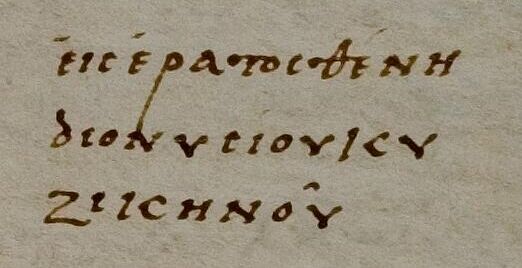 ἐις ἐρατοσθένη
διονυσίου κυ
ζικηνοῦ